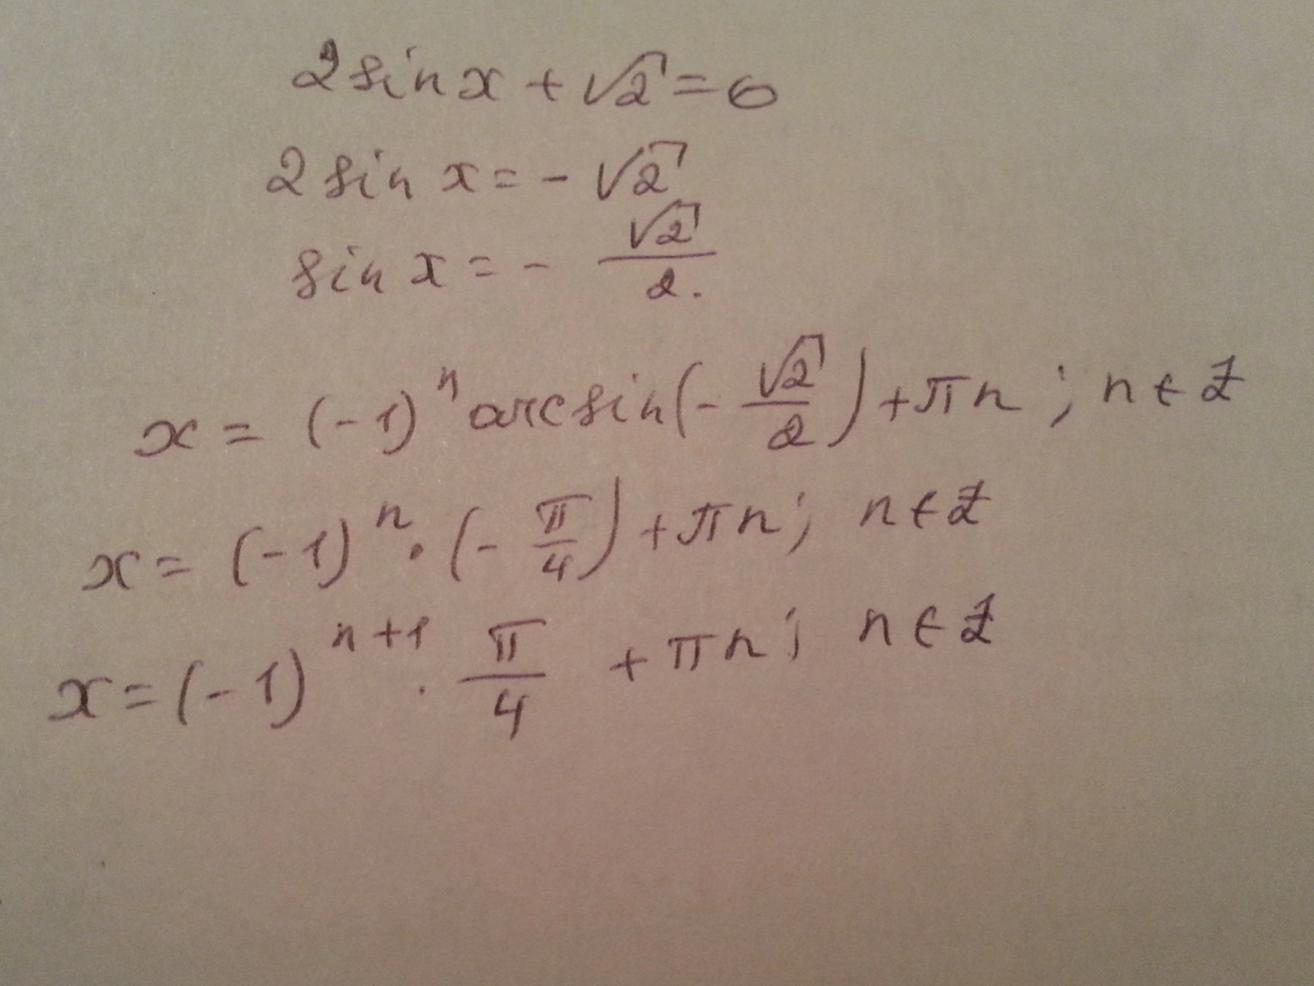 2 sin x + √2 = 0
2 sin x = - √2
sin x = - √2/2.
x = (-1)^n arcsin(- √2/2) + πn ; n ∈ Z
x = (-1)^n · (- π/4) + πn ; n ∈ Z
x = (-1)^(n+1) · π/4 + πn ; n ∈ Z